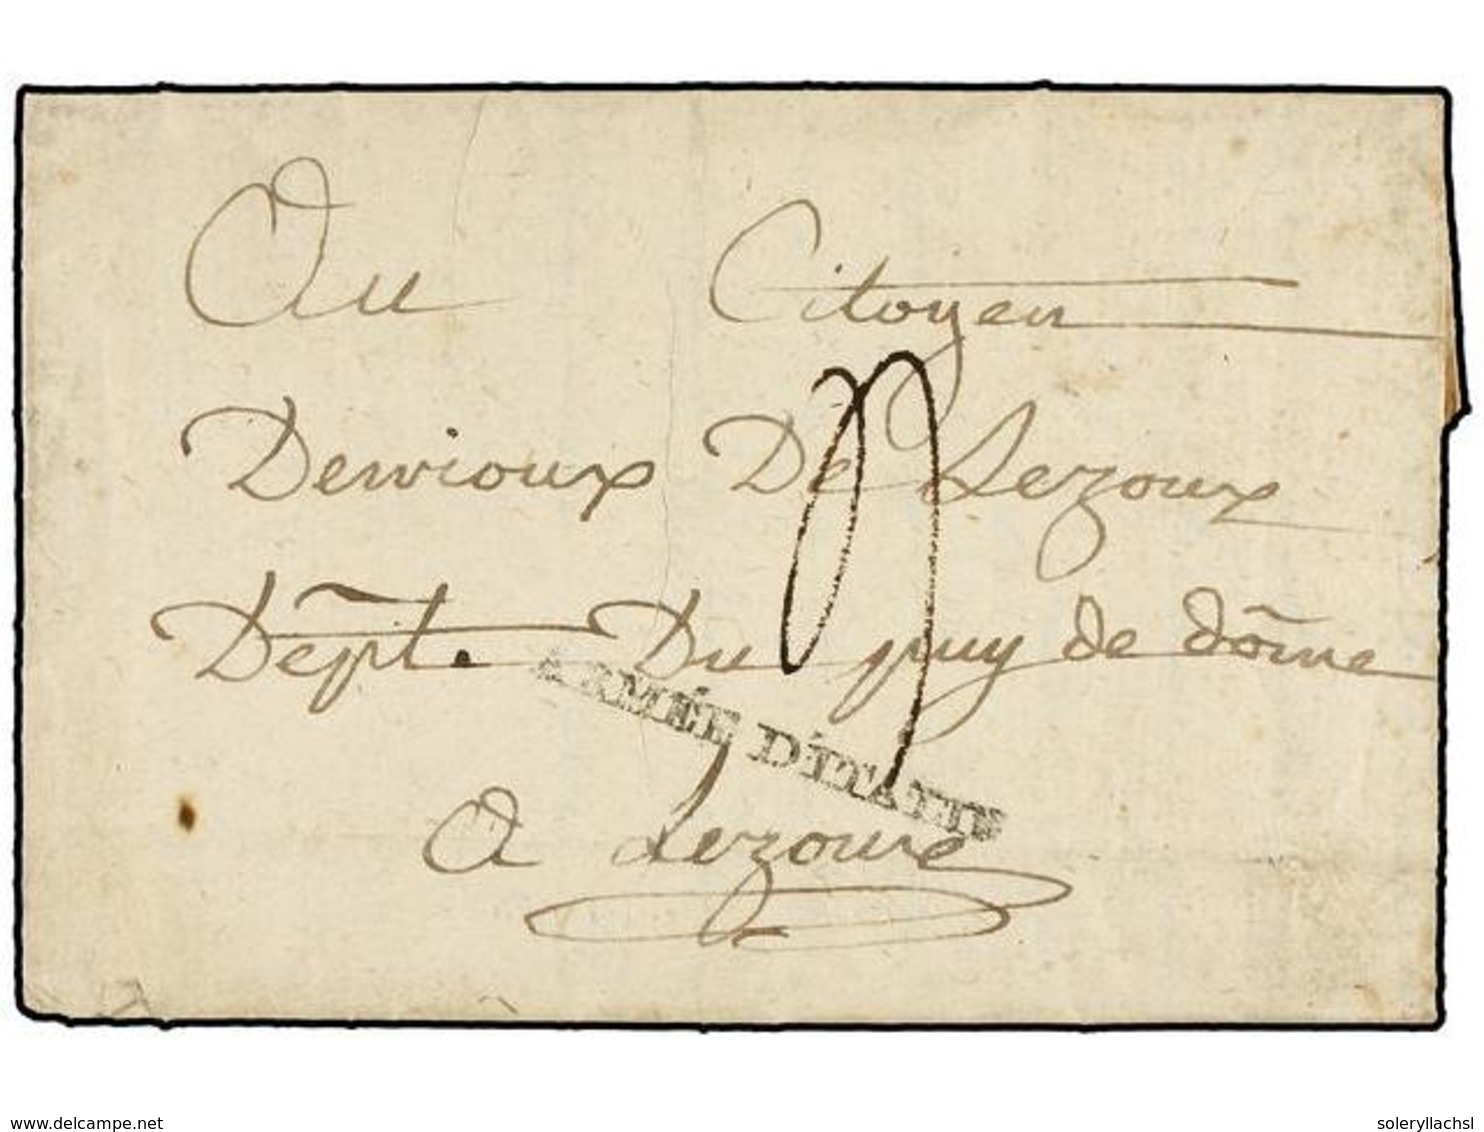 Au Citoyen
Dervioux De Lezoux
Dep̃t. Du puy de dôme
ARMÉE D'ITALIE
A Lezoux
www.delcampe.net
soleryllachsl